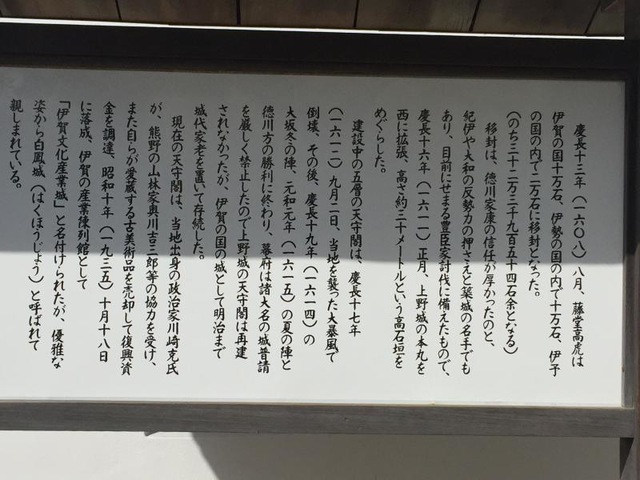 慶長十三年（一六〇八）八月、藤堂高虎は
伊賀の国十万石、伊勢の国の内で十万石、伊予
の国の内で二万石に移封となった。
（のち三十二万三千九百五十四石余となる）
移封は、徳川家康の信任が厚かったのと、
紀伊や大和の反勢力の押さえと築城の名手でも
あり、目前にせまる豊臣家討伐に備えたもので、
慶長十六年（一六一一）正月、上野城の本丸を
西に拡張、高さ約三十メートルという高石垣を
めぐらした。
建設中の五層の天守閣は、慶長十七年
（一六一二）九月二日、当地を襲った大暴風で
倒壊、その後、慶長十九年（一六一四）の
大坂冬の陣、元和元年（一六一五）の夏の陣と
徳川方の勝利に終わり、幕府は諸大名の城普請
を厳しく禁止したので上野城の天守閣は再建
されなかったが、伊賀の国の城として明治まで
城代家老を置いて存続した。
現在の天守閣は、当地出身の政治家川崎克氏
が、熊野の山林家奥川吉三郎等の協力を受け、
また自らが愛蔵する古美術品を売却して復興資
金を調達、昭和十年（一九三五）十月十八日
に落成、伊賀の産業陳列館として
「伊賀文化産業城」と名付けられたが、優雅な
姿から白鳳城（はくほうじょう）と呼ばれて
親しまれている。